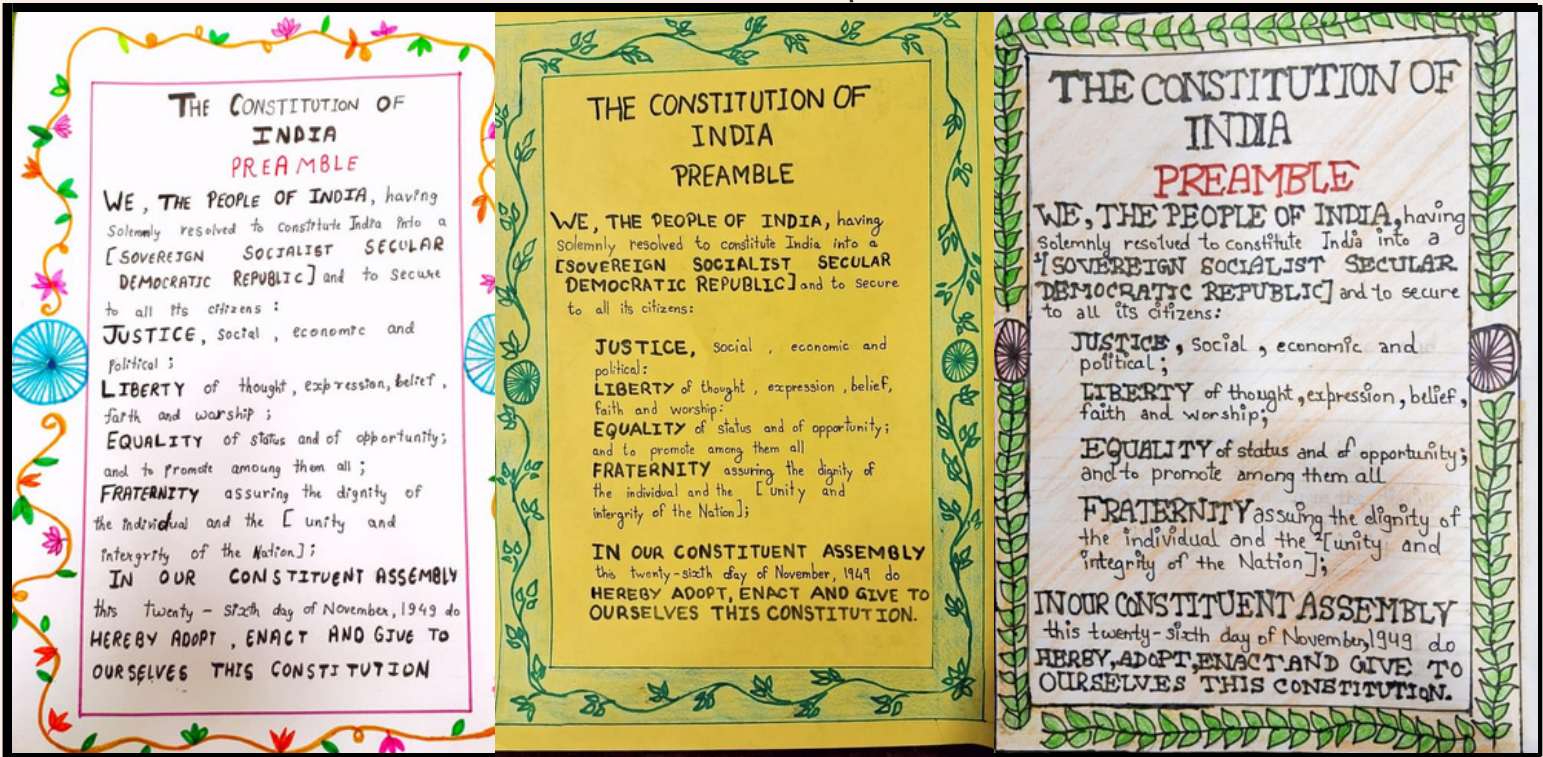 THE CONSTITUTION OF
INDIA
PREAMBLE
WE, THE PEOPLE OF INDIA, having
Solemnly resolved to constitute India into a
[SOVEREIGN SOCIALIST SECULAR
DEMOCRATIC REPUBLIC] and to secure
to all its citizens :
JUSTICE, social , economic and
Political ;
LIBERTY of thought, expression, belief ,
faith and warship ;
EQUALITY of status and of opportunity;
and to Promote amoung them all ;
FRATERNITY assuring the dignity of
the individual and the [ unity and
intergrity of the Nation] ;
IN OUR CONSTITUENT ASSEMBLY
this twenty - sixth day of November, 1949 do
HEREBY ADOPT , ENACT AND GIVE TO
OURSELVES THIS CONSTITUTION
THE CONSTITUTION OF
INDIA
PREAMBLE
WE, THE PEOPLE OF INDIA, having
solemnly resolved to constitute India into a
[SOVEREIGN SOCIALIST SECULAR
DEMOCRATIC REPUBLIC] and to secure
to all its citizens:
JUSTICE, social , economic and
political:
LIBERTY of thought , expression , belief,
faith and worship:
EQUALITY of status and of opportunity;
and to promote among them all
FRATERNITY assuring the dignity of
the individual and the [ unity and
intergrity of the Nation];
IN OUR CONSTITUENT ASSEMBLY
this twenty-sixth day of November, 1949 do
HEREBY ADOPT, ENACT AND GIVE TO
OURSELVES THIS CONSTITUTION.
THE CONSTITUTION OF
INDIA
PREAMBLE
WE, THE PEOPLE OF INDIA, having
solemnly resolved to constitute India into a
¹[SOVEREIGN SOCIALIST SECULAR
DEMOCRATIC REPUBLIC] and to secure
to all its citizens:
JUSTICE , social , economic and
political ;
LIBERTY of thought , expression , belief ,
faith and worship;
EQUALITY of status and of opportunity;
and to promote among them all
FRATERNITY assuing the dignity of
the individual and the ²[unity and
integrity of the Nation];
IN OUR CONSTITUENT ASSEMBLY
this twenty-sixth day of November,1949 do
HERBY, ADOPT, ENACT AND GIVE TO
OURSELVES THIS CONSTITUTION.